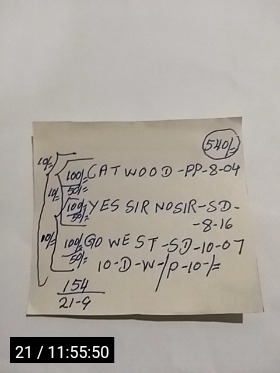 540/=
10/-
100/- CATWOOD-PP-8-04
50/=
10/-
100/- YES SIR NOSIR-SD-
50/=
-8-16
10/-
100/- GO WEST-SD-10-07
50/=
10-D-W-/P-10-/=
154
21-9
21 / 11:55:50